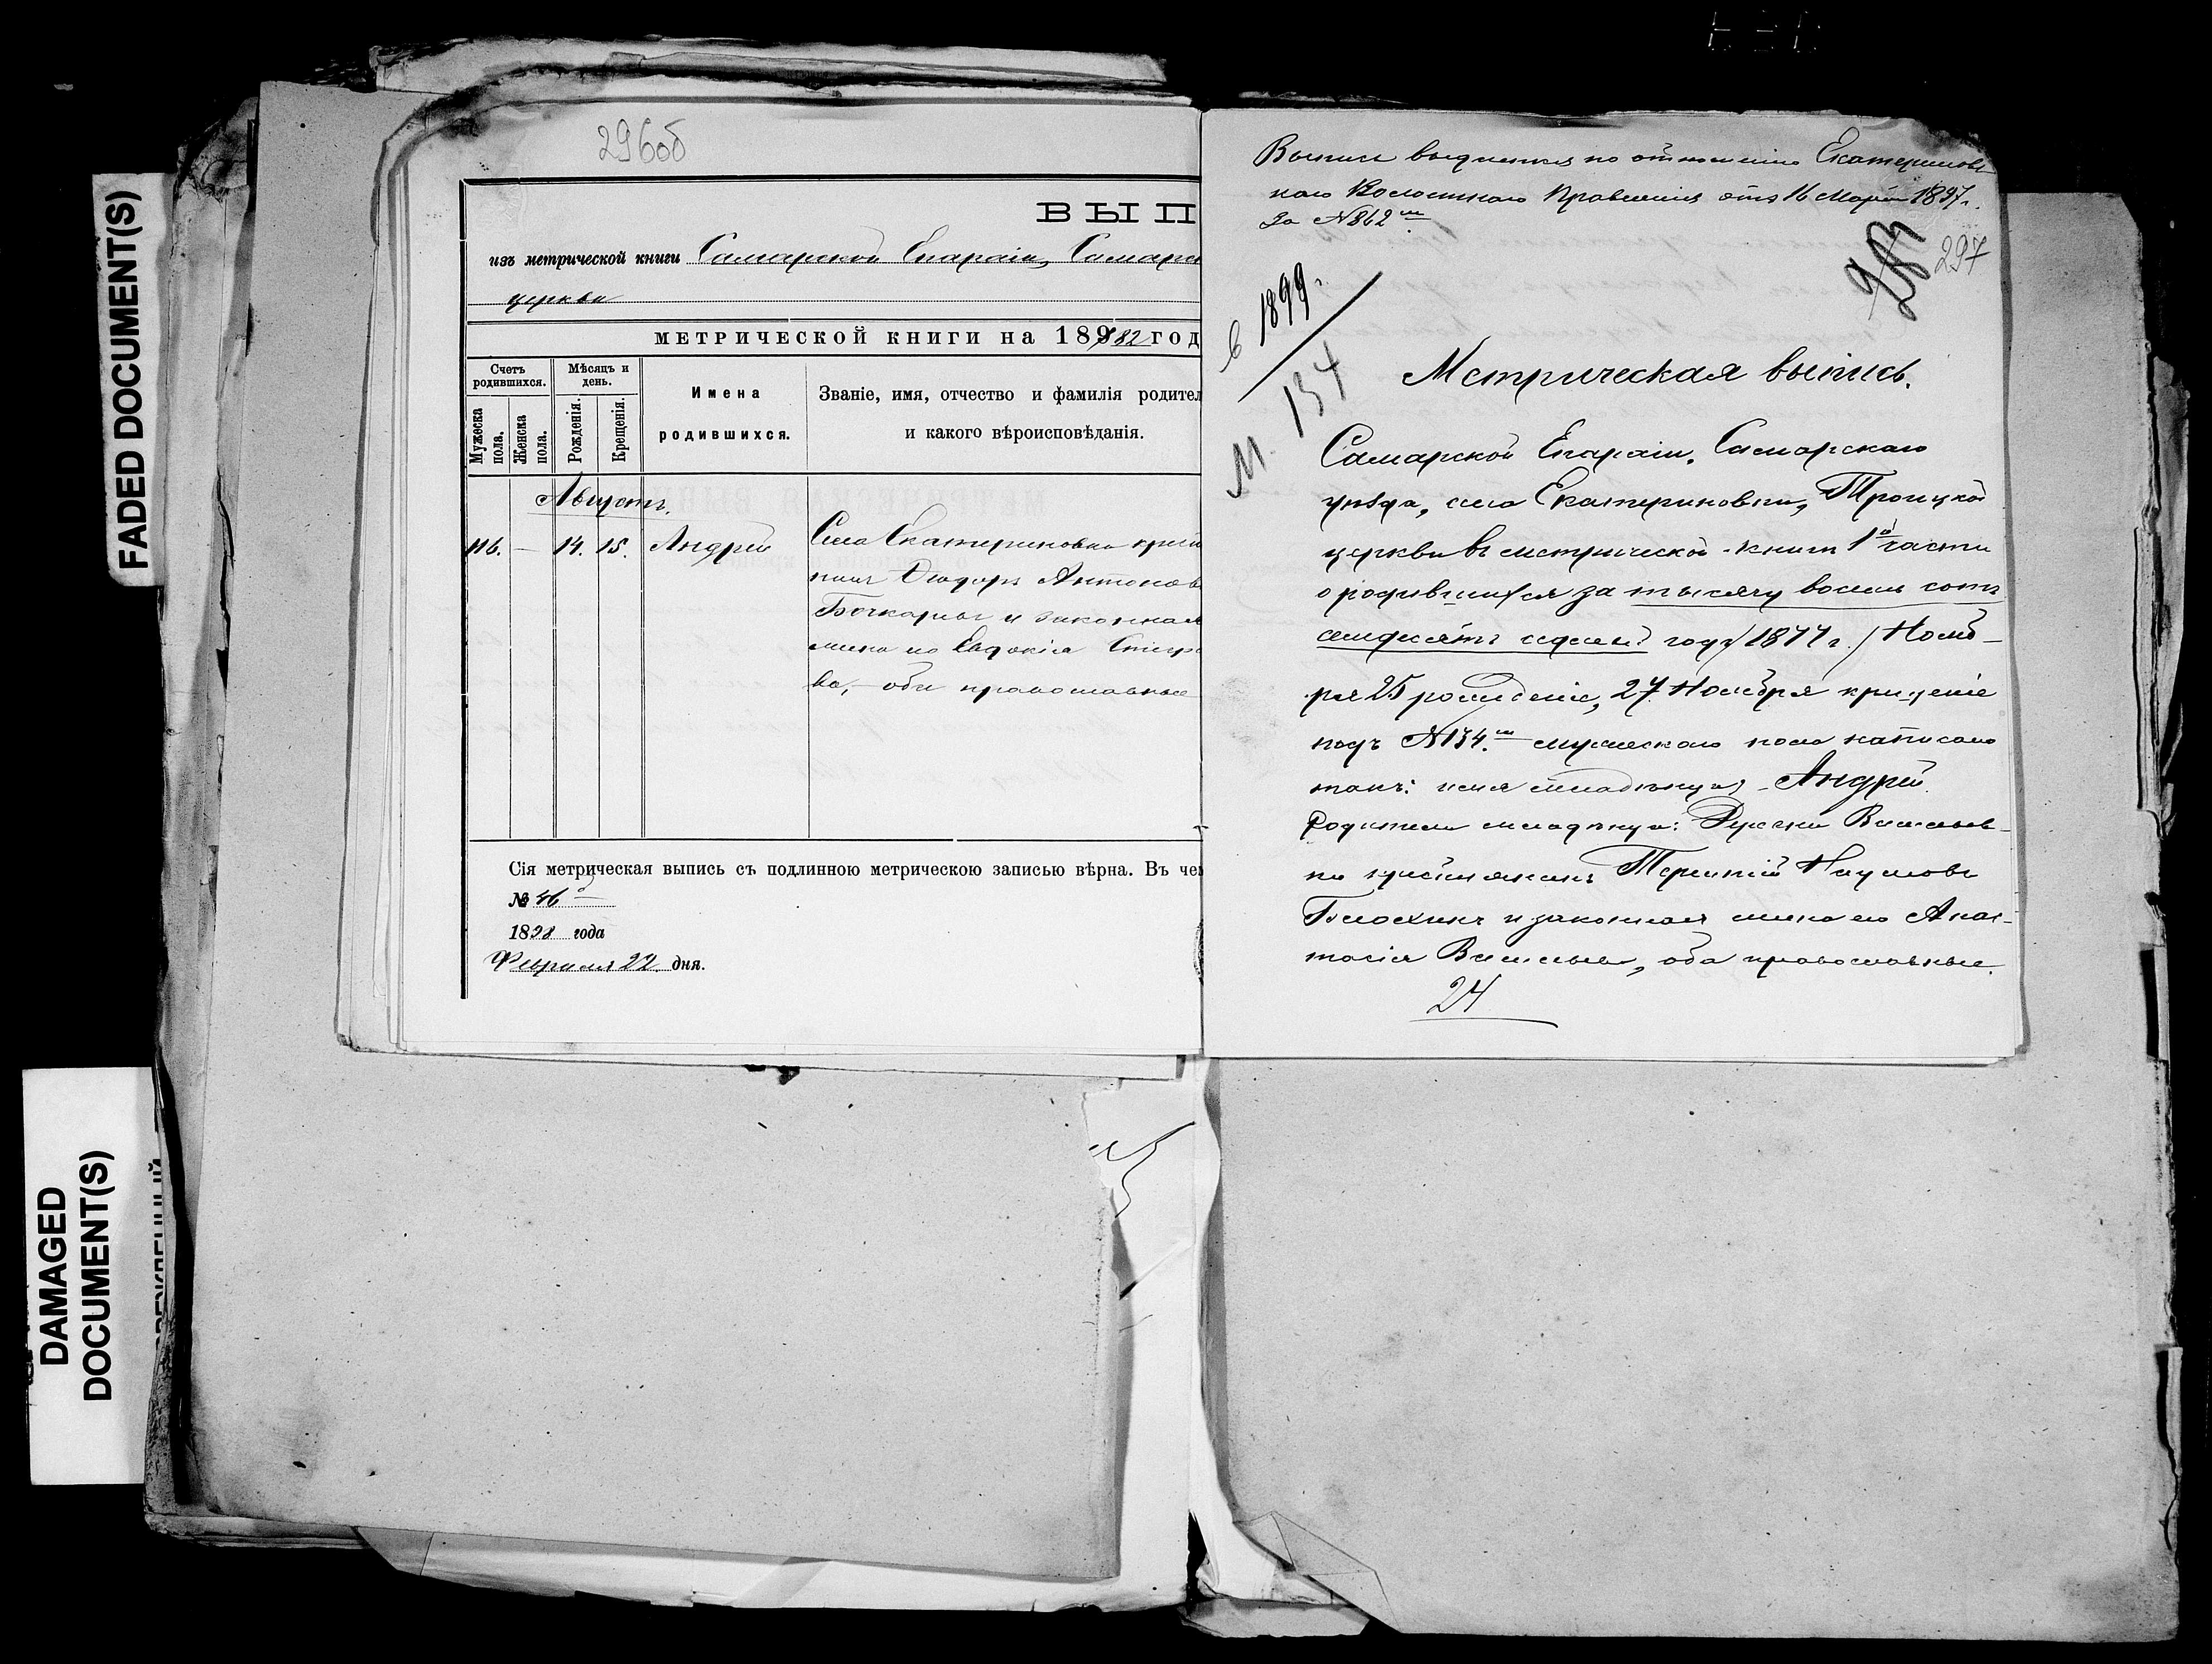 FADED DOCUMENT(S)
DAMAGED
DOCUMENT(S)
296об
ВЫП
изъ метрической книги Самарской Епархіи, Самарс
церкви
МЕТРИЧЕСКОЙ КНИГИ на 1882 ГОД
Счетъ родившихся.
Мѣсяцъ и день.
Мужеска пола.
Женска пола.
Рожденія.
Крещенія.
Имена родившихся.
Званіе, имя, отчество и фамилія родител
и какого вѣроисповѣданія.
Августъ.
116. — 14. 15. Андрей
Села Екатериновки крест
нинъ Ѳеодоръ Антонов
Бочкаревъ и законная
жена его Евдокія
ва, — оба православные
Сія метрическая выпись съ подлинною метрическою записью вѣрна. Въ чем
№ 46
1898 года
Февраля 22 дня.
Выпись выдана по отношенію Екатериновс
каго Волостнаго Правленія отъ 16 Марта 1897 г.
За №862
297
1899 г.
М. 134
Метрическая выпись.
Самарской Епархіи, Самарскаго
уѣзда, села Екатериновки, Троицкой
церкви въ метрической книгѣ 1й части
о родившихся за тысячу восемь сотъ
семдесятъ седьмой годъ /1877 г./ Нояб-
ря 25 рожденіе, 27 Ноября крещеніе
подъ №134.м мужескаго пола написано
такъ: имя младенцу - Андрей.
Родители младенца: Василев-
ки крестьянинъ Терентій Наумовъ
Блохинъ и законная жена его Анас-
тасія Васильева, оба православные.
24